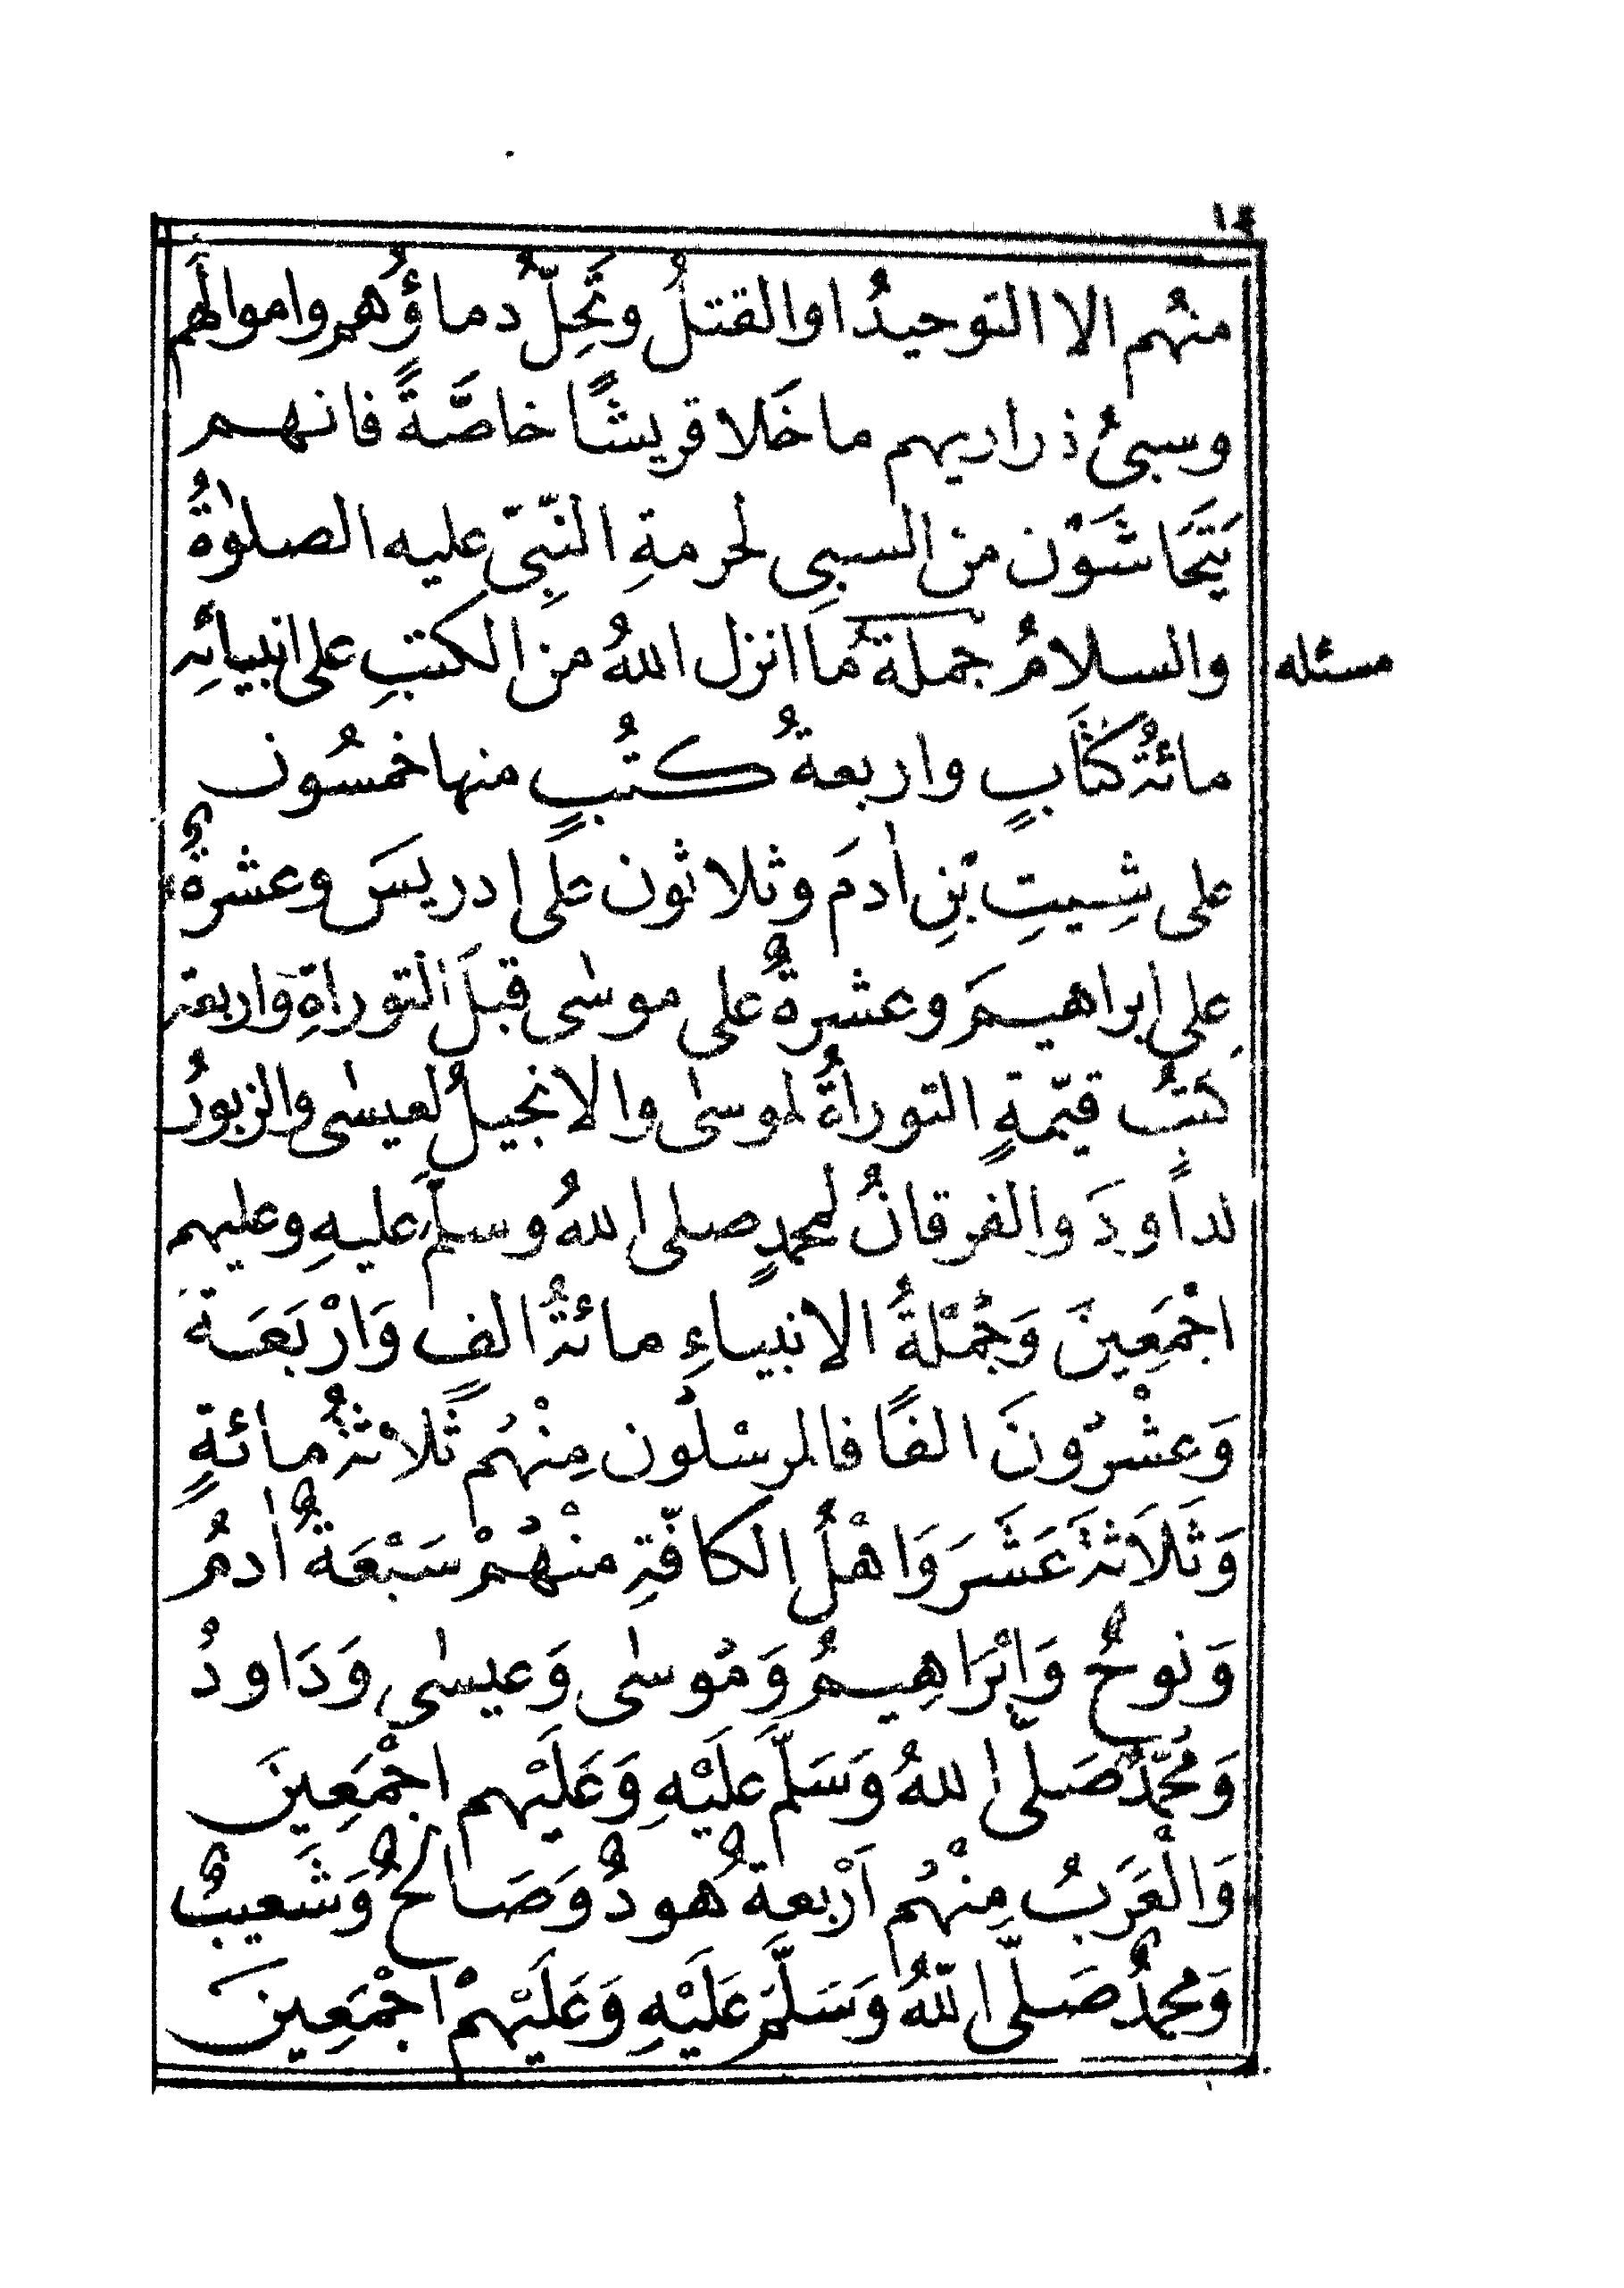 منهُم الا التوحيدُ او القتلُ وتَحِلُّ دماؤُهم واموالَهم
وسبىُ ذراريهم ما خَلا قريشًا خاصَّةً فانهم
يَتَحَاشَوْن من السبىِ لحرمةِ النّبِىّ عليه الصلوٰةُ
والسلامُ جملةُ مَا انزل اللهُ من الكتبِ على انبيائِه
مسئله
مائةُ كتَابٍ واربعةُ كتُبٍ منها خمسُون
على شِيتِ بْنِ اٰدمَ وثلاثون على ادريسَ وعشرةٌ
على ابراهيمَ وعشرةٌ على موسٰى قبلَ التوراةِ وَاربعة
كتُبٍ قيّمةٍ التوراةُ لموسٰى والانجيلُ لعيسٰى والزبورُ
لداودَ والفرقانُ لمحمدٍ صلى اللهُ وسلَّم عليهِ وعليهم
اجْمَعِينَ وَجُمْلَةُ الانبياءِ مائةُ الفٍ وَارْبَعَة
وَعِشْرُونَ الفًا فالمرسْلُون مِنْهُم ثَلاثةُ مائةٍ
وَثَلَاثةَ عَشَرَ وَاهْلُ الكافّةِ منْهُمْ سَبْعَةٌ اٰدمُ
وَنوحٌ وَاِبْرَاهِيمُ وَمُوسٰى وَعيسٰى وَدَاودُ
وَمُحَمّدٌ صَلّى اللهُ وَسَلَّمَ عَلَيْهِ وَعَلَيْهم اجْمَعِينَ
وَالْعَرَبُ مِنْهُم اَرْبعةٌ هُودٌ وَصَالحٌ وَشَعيبٌ
وَمحمدٌ صَلّى اللّهُ وَسَلَّمَ عَلَيْهِ وَعَلَيْهِمْ اجْمَعِينَ